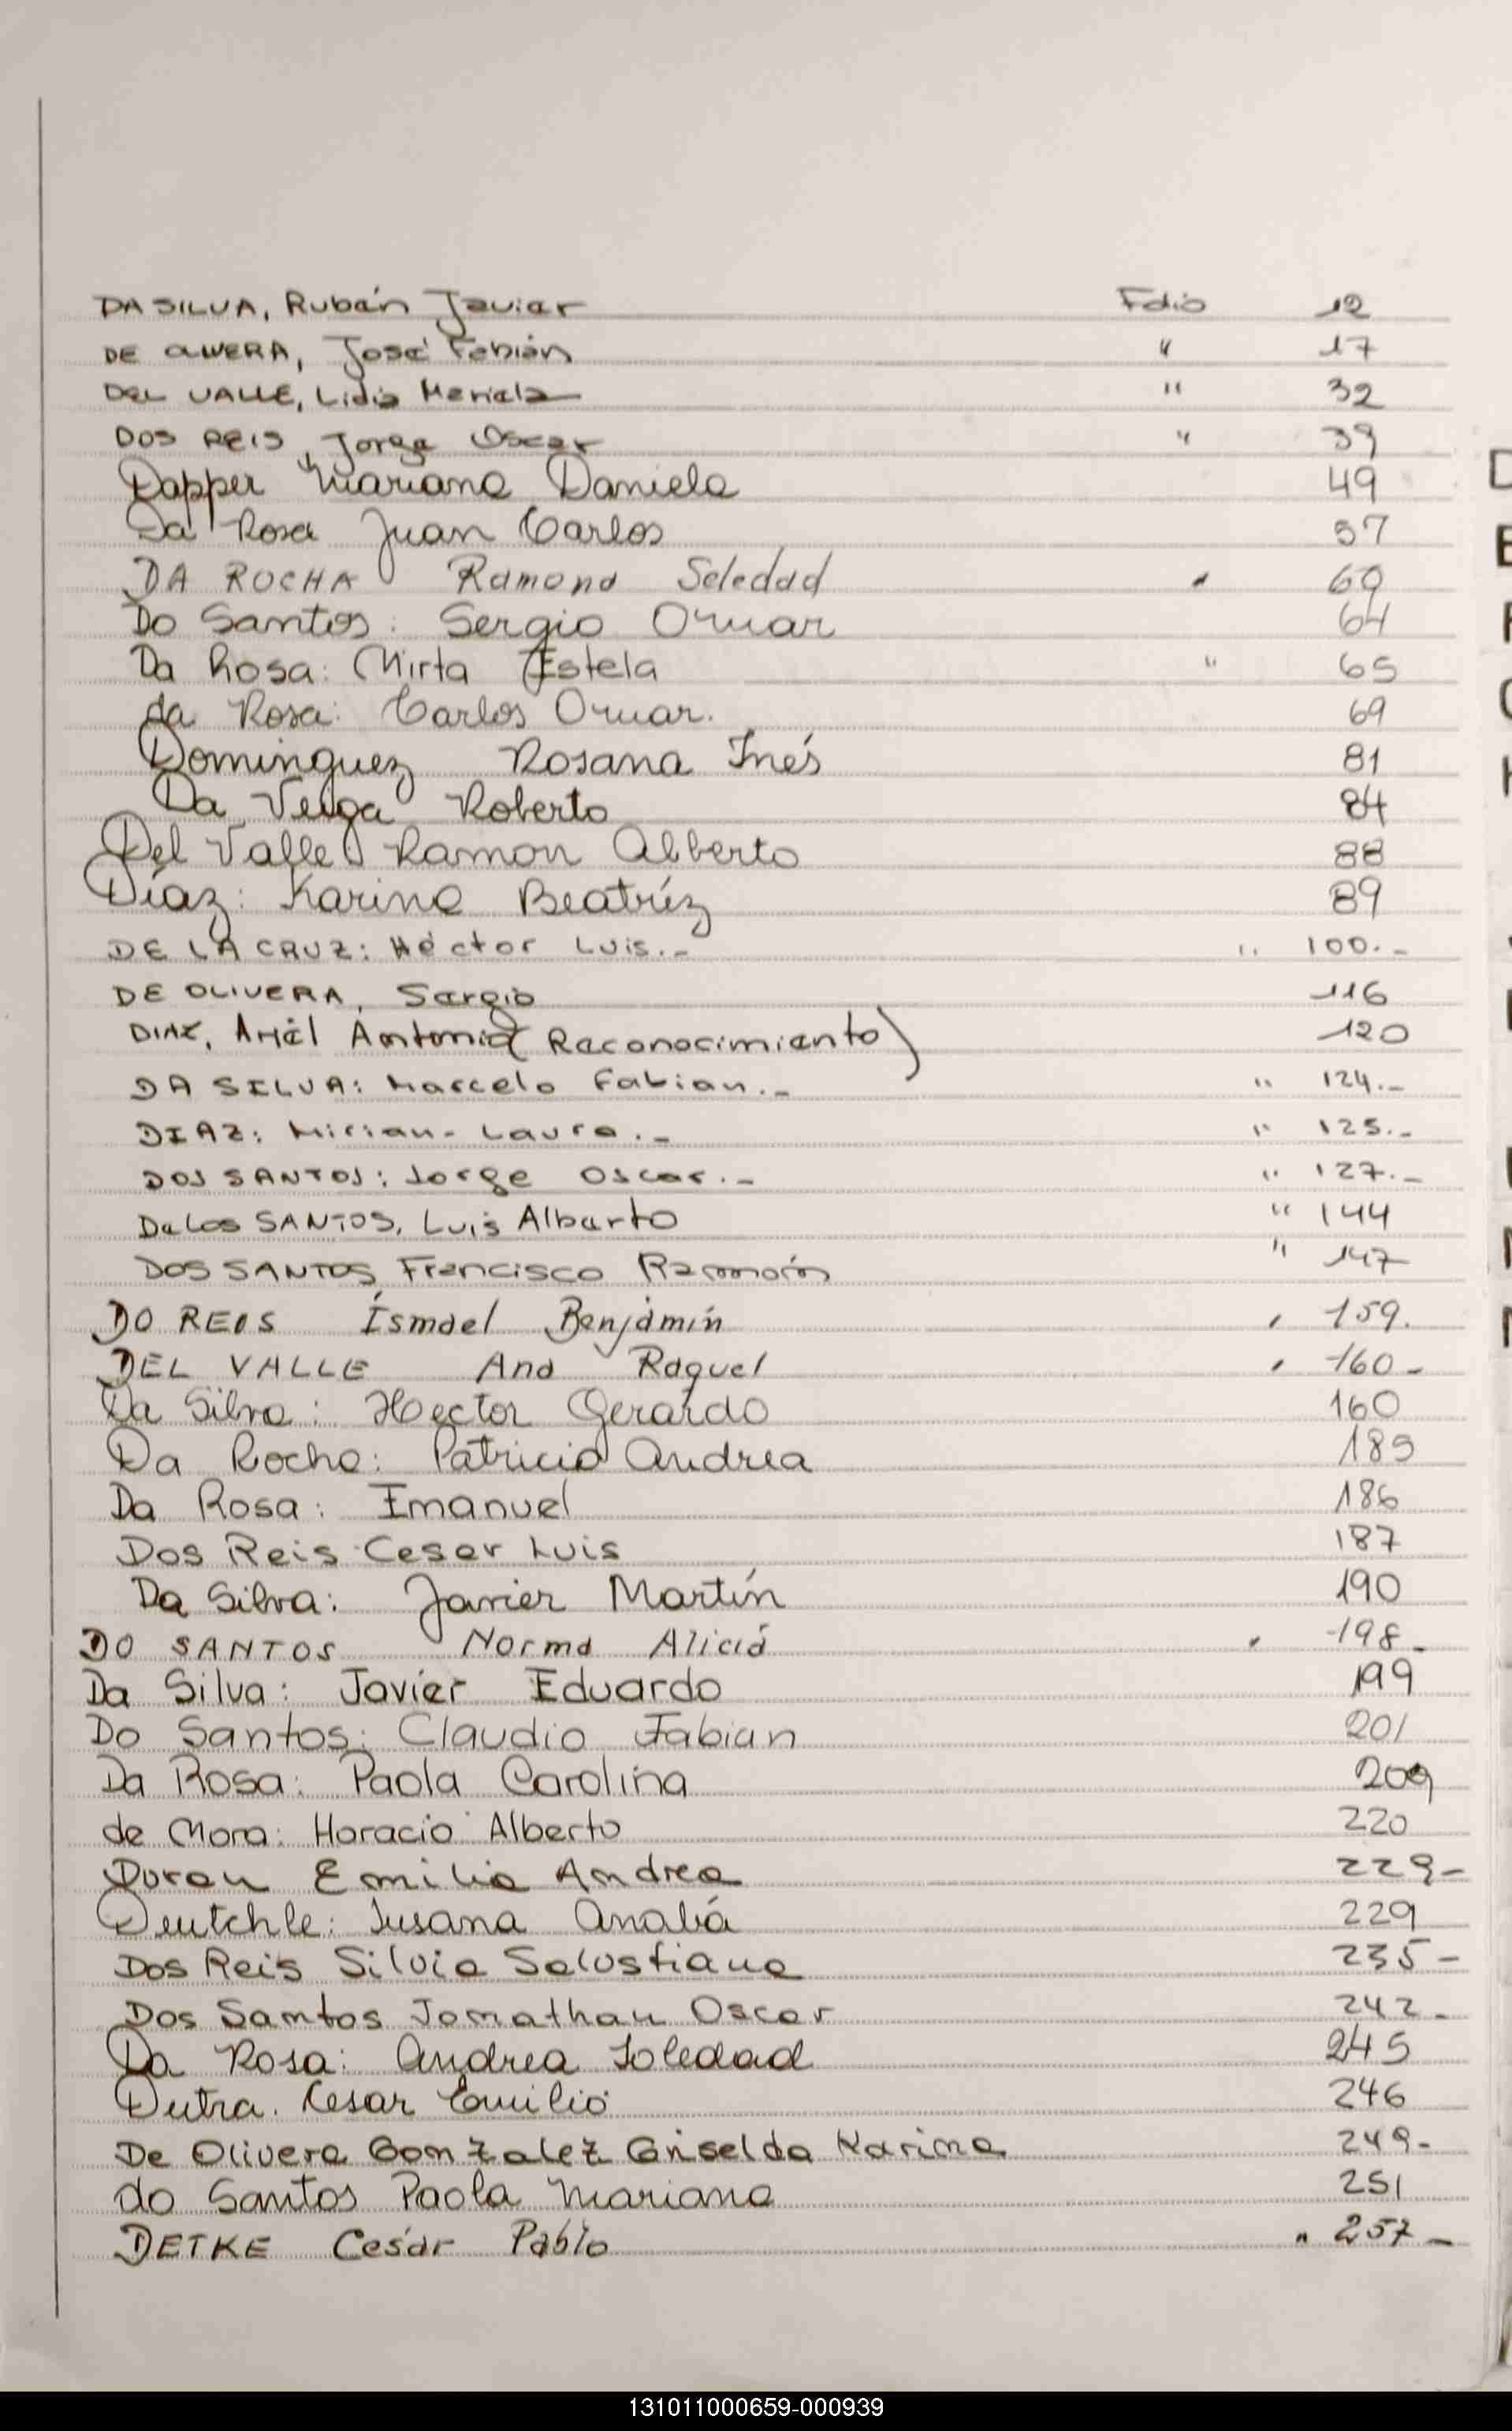 DA SILVA, Rubén Javier Folio 12
DE OLIVERA, José Fabián " 17
DEL VALLE, Lidia Mariela " 32
DOS REIS, Jorge Oscar " 39
Dapper Mariana Daniela 49
Da Rosa Juan Carlos 57
DA ROCHA Ramona Soledad " 60
Do Santos: Sergio Omar 64
Da Rosa: Mirta Estela " 65
da Rosa: Carlos Omar. 69
Dominguez Rosana Inés 81
Da Veiga Roberto 84
Del Valle Ramon Alberto 88
Díaz: Karina Beatríz 89
DE LA CRUZ: Héctor Luis.- " 100.-
DE OLIVERA, Sergio 116
DIAZ, Ariel Antonio (Reconocimiento) 120
DA SILVA: Marcelo Fabian.- " 124.-
DIAZ: Mirian- Laura.- " 125.-
DOS SANTOS: Jorge Oscar.- " 127.-
De Los SANTOS, Luis Alberto " 144
DOS SANTOS, Francisco Ramón " 147
DO REIS Ismael Benjamín " 159.
DEL VALLE Ana Raquel " 160-
Da Silva: Hector Gerardo 160
Da Rocha: Patricia Andrea 185
Da Rosa: Emanuel 186
Dos Reis Cesar Luis 187
Da Silva: Javier Martín 190
DO SANTOS Norma Alicia " 198-
Da Silva: Javier Eduardo 199
Do Santos: Claudio Fabian 201
Da Rosa: Paola Carolina 209
de Mora: Horacio Alberto 220
Duran Emilia Andrea 229-
Deutchle: Susana Analía 229
Dos Reis Silvia Salustiana 235-
Dos Santos Jonathan Oscar 242-
Da Rosa: Andrea Soledad 245
Dutra. Cesar Emilio 246
De Olivera Gonzalez Griselda Karina 249-
do Santos Paola Mariana 251
DETKE Cesár Pablo " 257-
131011000659-000939